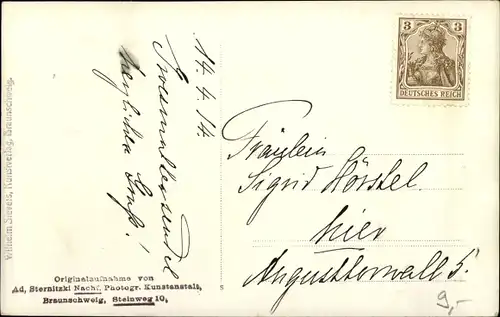 14.4.14.
herzlichen Gruß!
3 3
DEUTSCHES REICH
Fräulein
Sigrid Hörstel.
hier
Augustthorwall 5.
Originalaufnahme von
Ad. Sternitzki Nachf. Photogr. Kunstanstalt,
Braunschweig, Steinweg 10,
Wilhelm Sievers, Kunstverlag, Braunschweig.
5
9,-